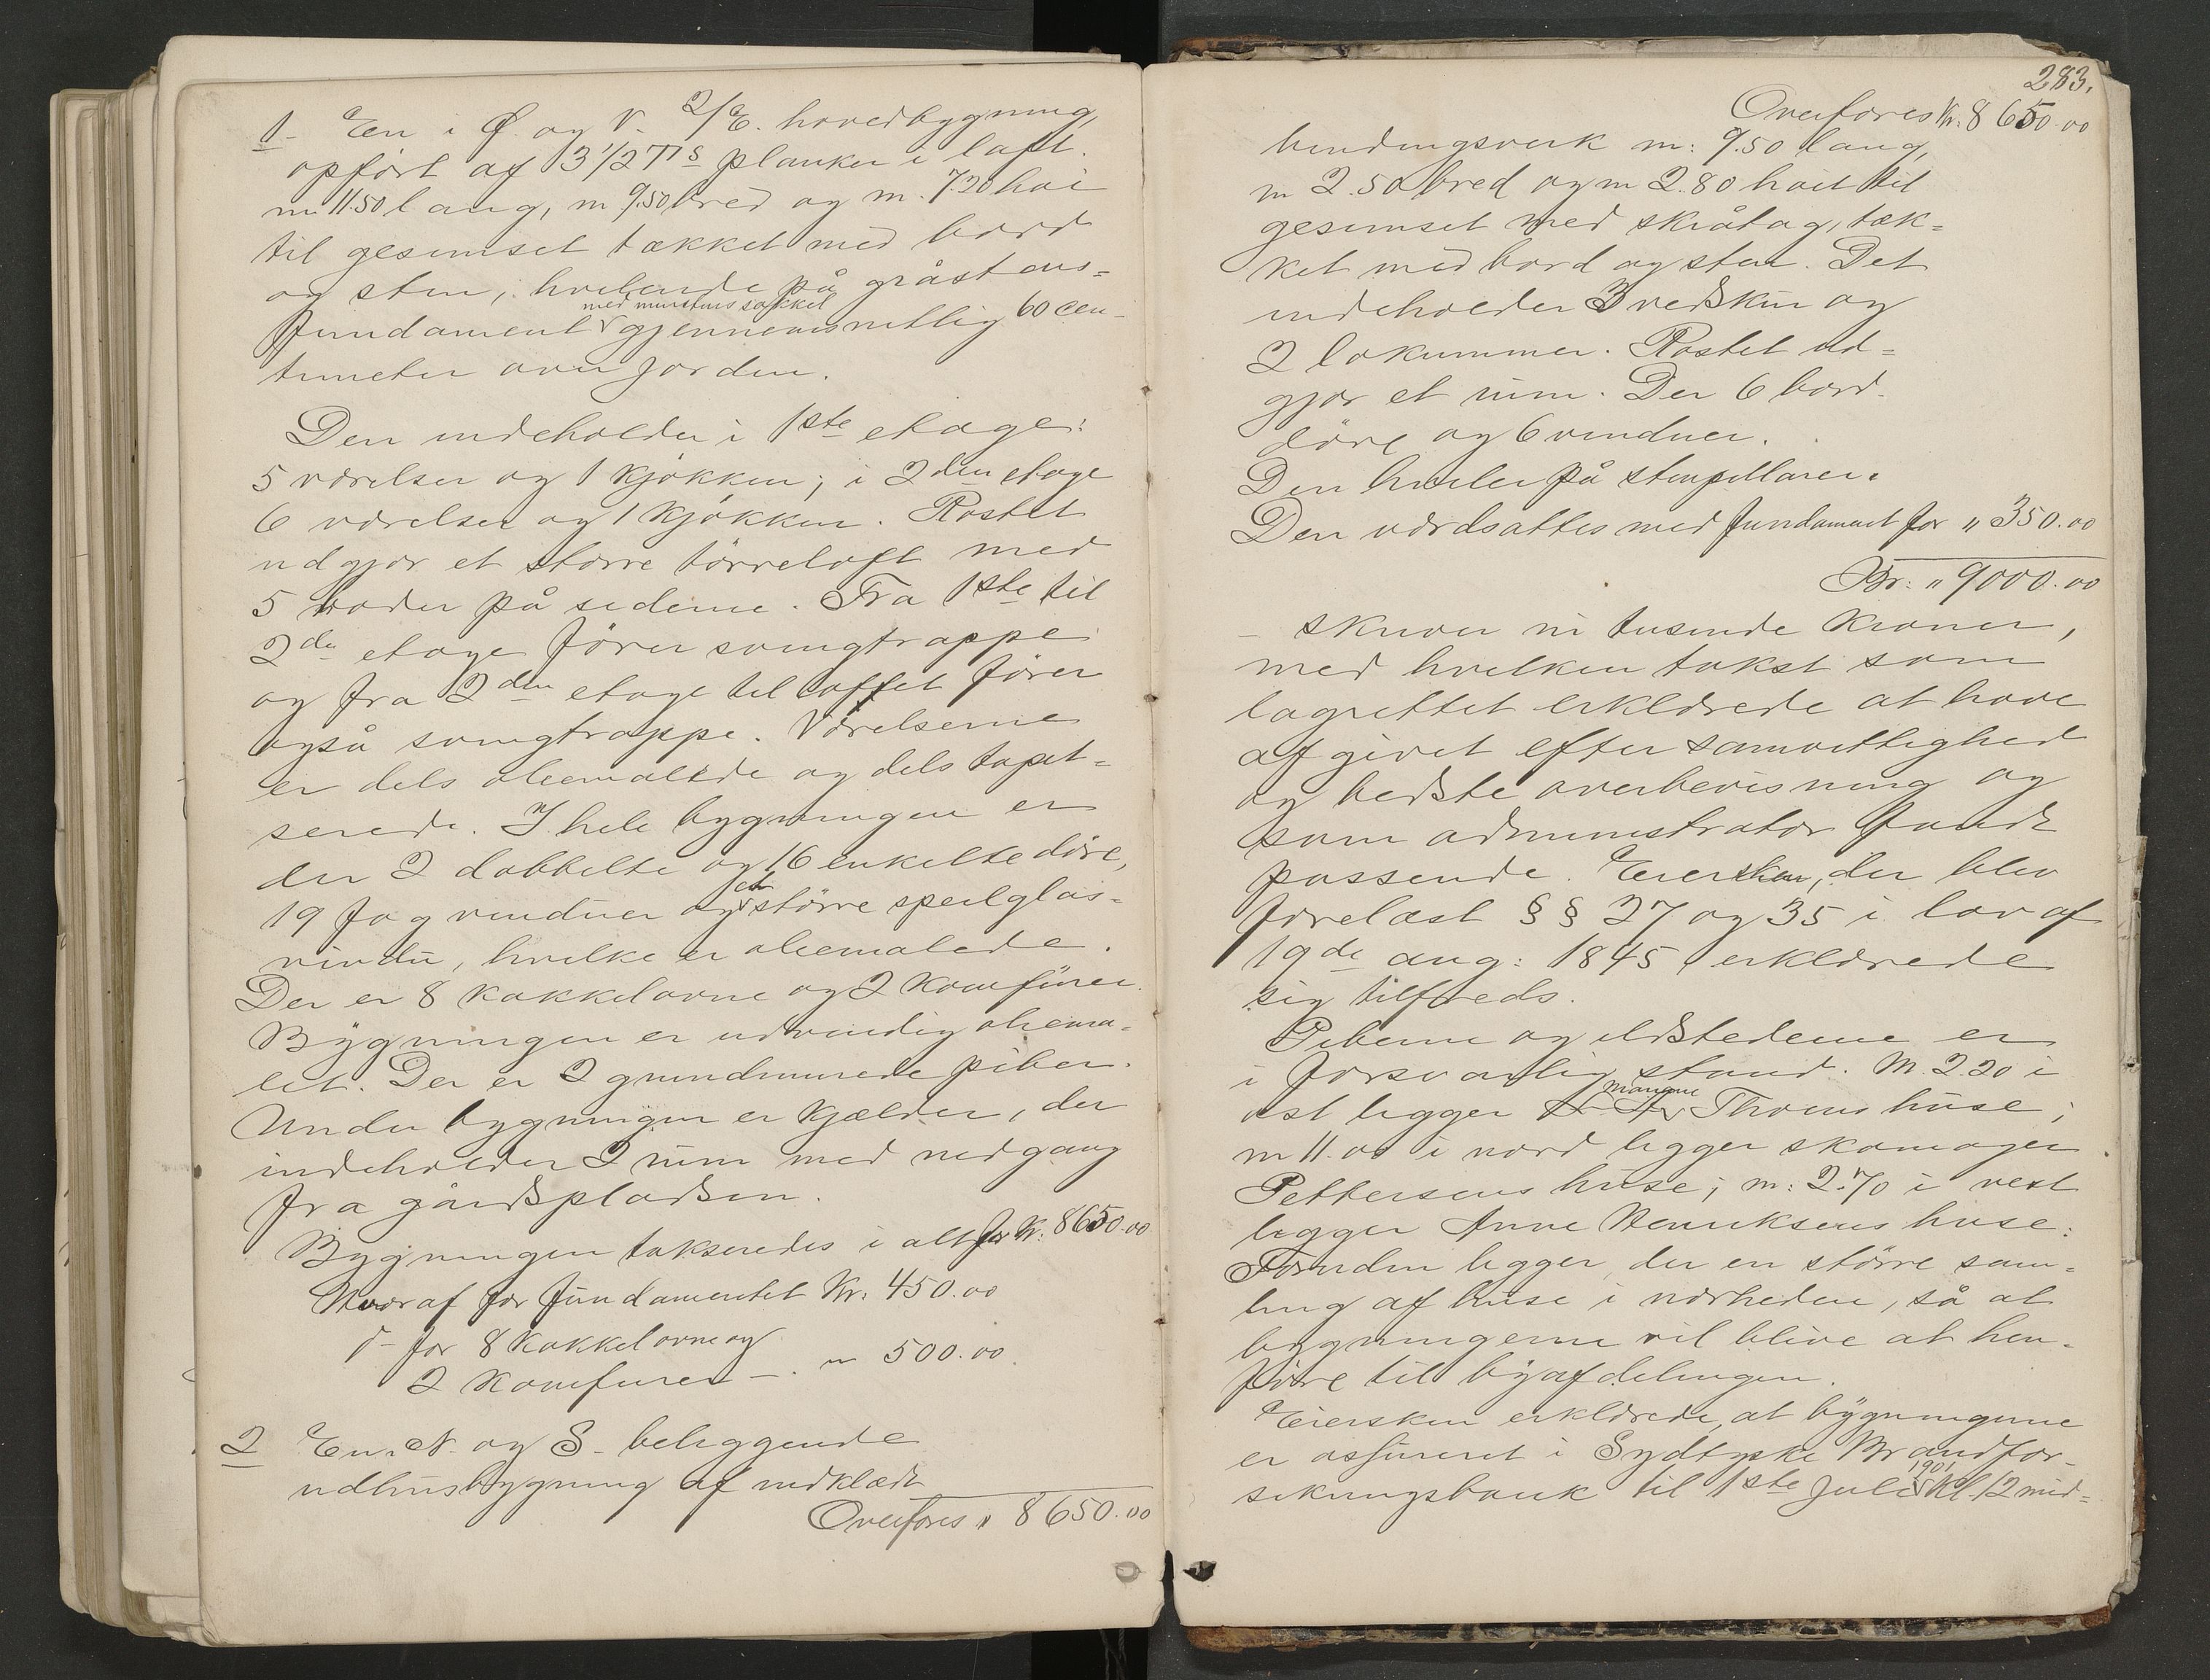 1- En i Ø og V. 2/E. hovedbygning,
opført af 3 1/2 T's planker i laft.
m 11.50 lang, m 9.50 bred og m. 7.20 høi
til gesimset tækket med bord
og sten, hvilende på gråstens=
med murstens sokkel
fundament gjennemsnitlig 60 cen-
timeter over jorden.
Den indeholder i 1ste etage:
5 værelser og 1 kjøkken; i 2den etage
6 værelser og 1 kjøkken. Røstet
udgjør et større tørreloft med
5 boder på siderne. Fra 1ste til
2de etage fører svingtrappe
og fra 2den etage til loftet fører
også svingtrappe. Værelserne
er dels oliemalede og dels tapet=
serede. I hele bygningen er
der 2 dobbelte og 16 enkelte døre,
et
19 fag vinduer og større speilglas=
vindu, hvilke er oliemalede.
Der er 8 kakkelovne og 2 komfurer.
Bygningen er udvendig oliema=
let. Der er 2 grundmurede piber.
Under bygningen er kjælder, der
indeholder 2 rum med nedgang
fra gårdspladsen.
Bygningen takseredes i alt for Kr. 8650.00
Hvoraf for fundamentet Kr. 450.00
d- for 8 kakkelovne og
2 komfurer - . " 500.00
2 En i N. og S. beliggende
udhusbygning af rødklædt
Overføres " 8650.00
283.
Overføres Kr. 8650.00
bindingsverk m: 9.50 lang,
m 2.50 bred og m 2.80 høit til
gesimset med skråtag, tæk=
ket med bord og sten. Det
indeholder 3 vedskur og
2 lokummer. Røstet ud=
gjør et rum. Der 6 bord-
døre og 6 vinduer.
Den hviler på stenpillarer.
Den værdsattes med fundament for " 350.00
Br: " 9000.00
- skriver ni tusinde kroner,
med hvilken takst som
lagrettet erklærede at have
afgivet efter samvittighed
og bedste overbevisning og
som administrator fandt
passende. Eiersken, der blev
forelæst §§ 27 og 35 i lov af
19de aug: 1845 erklærede
sig tilfreds.
Piberne og ildstederne er
i forsvarlig stand. M. 2.20 i
Mangne
øst ligger Thorns huse;
m 11.00 i nord ligger skomager
Pettersens huse; m: 2.70 i vest
ligger Anne Henriksens huse:
Foruden ligger der en større sam=
ling af huse i nærheden, så at
bygningerne vil blive at hen=
føre til byafdelingen.
Eiersken erklærede, at bygningerne
er assureret i Sydtyske Brandfor-
1901
sikringsbank til 1ste Juli Kl. 12 mid=